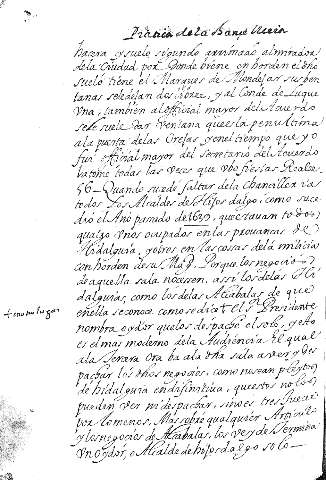 Practica de la Sancilleria
hazera y suelo segundo arrimado al mirador
de la Ciudad por donde biene en horden el dho
suelo tiene el Marques de Mondejar sus ben
tanas se le dejan dos libres, y al Conde de Luque
Vna, tambien al official mayor del Acuerdo
se le suele dar Ventana que es la penultima
a la puerta de las Orejas y en el tiempo que yo
fui official mayor del Secretario del Acuerdo
la tome todas las veces que vbo fiestas Reales
56 - Quando suzede faltar de la chancilleria
todos los Alcaldes de Hijosdalgo, como suce
dio el Año pasado de 1639, que estauan todos
qual y vnos ocupados en las prouanças de
Hidalguia, y otros en las cosas de la milicia
con horden de su Magd. Porque los negocios
de aquella sala no cesen, assi los de las Hi
dalguias, como los de las Alcabalas de que
en ella se conoce como se dira el Sr. Presidente
nombra oydor que los despache el solo, y esto
es el mas moderno de la Audiencia El qual
a la Terzera Ora ba a la dha sala a ver y des
pachar los dhos negocios, como no sean pleytos
de hidalguia en difinitiua, que estos no los
pueden ver ni despachar, sino es tres Juezes
por lo menos, Mas sobre qualquier Articulo
y los negocios de Alcabalas, los ve y determina
Vn Oydor, o Alcalde de hijosdalgo solo